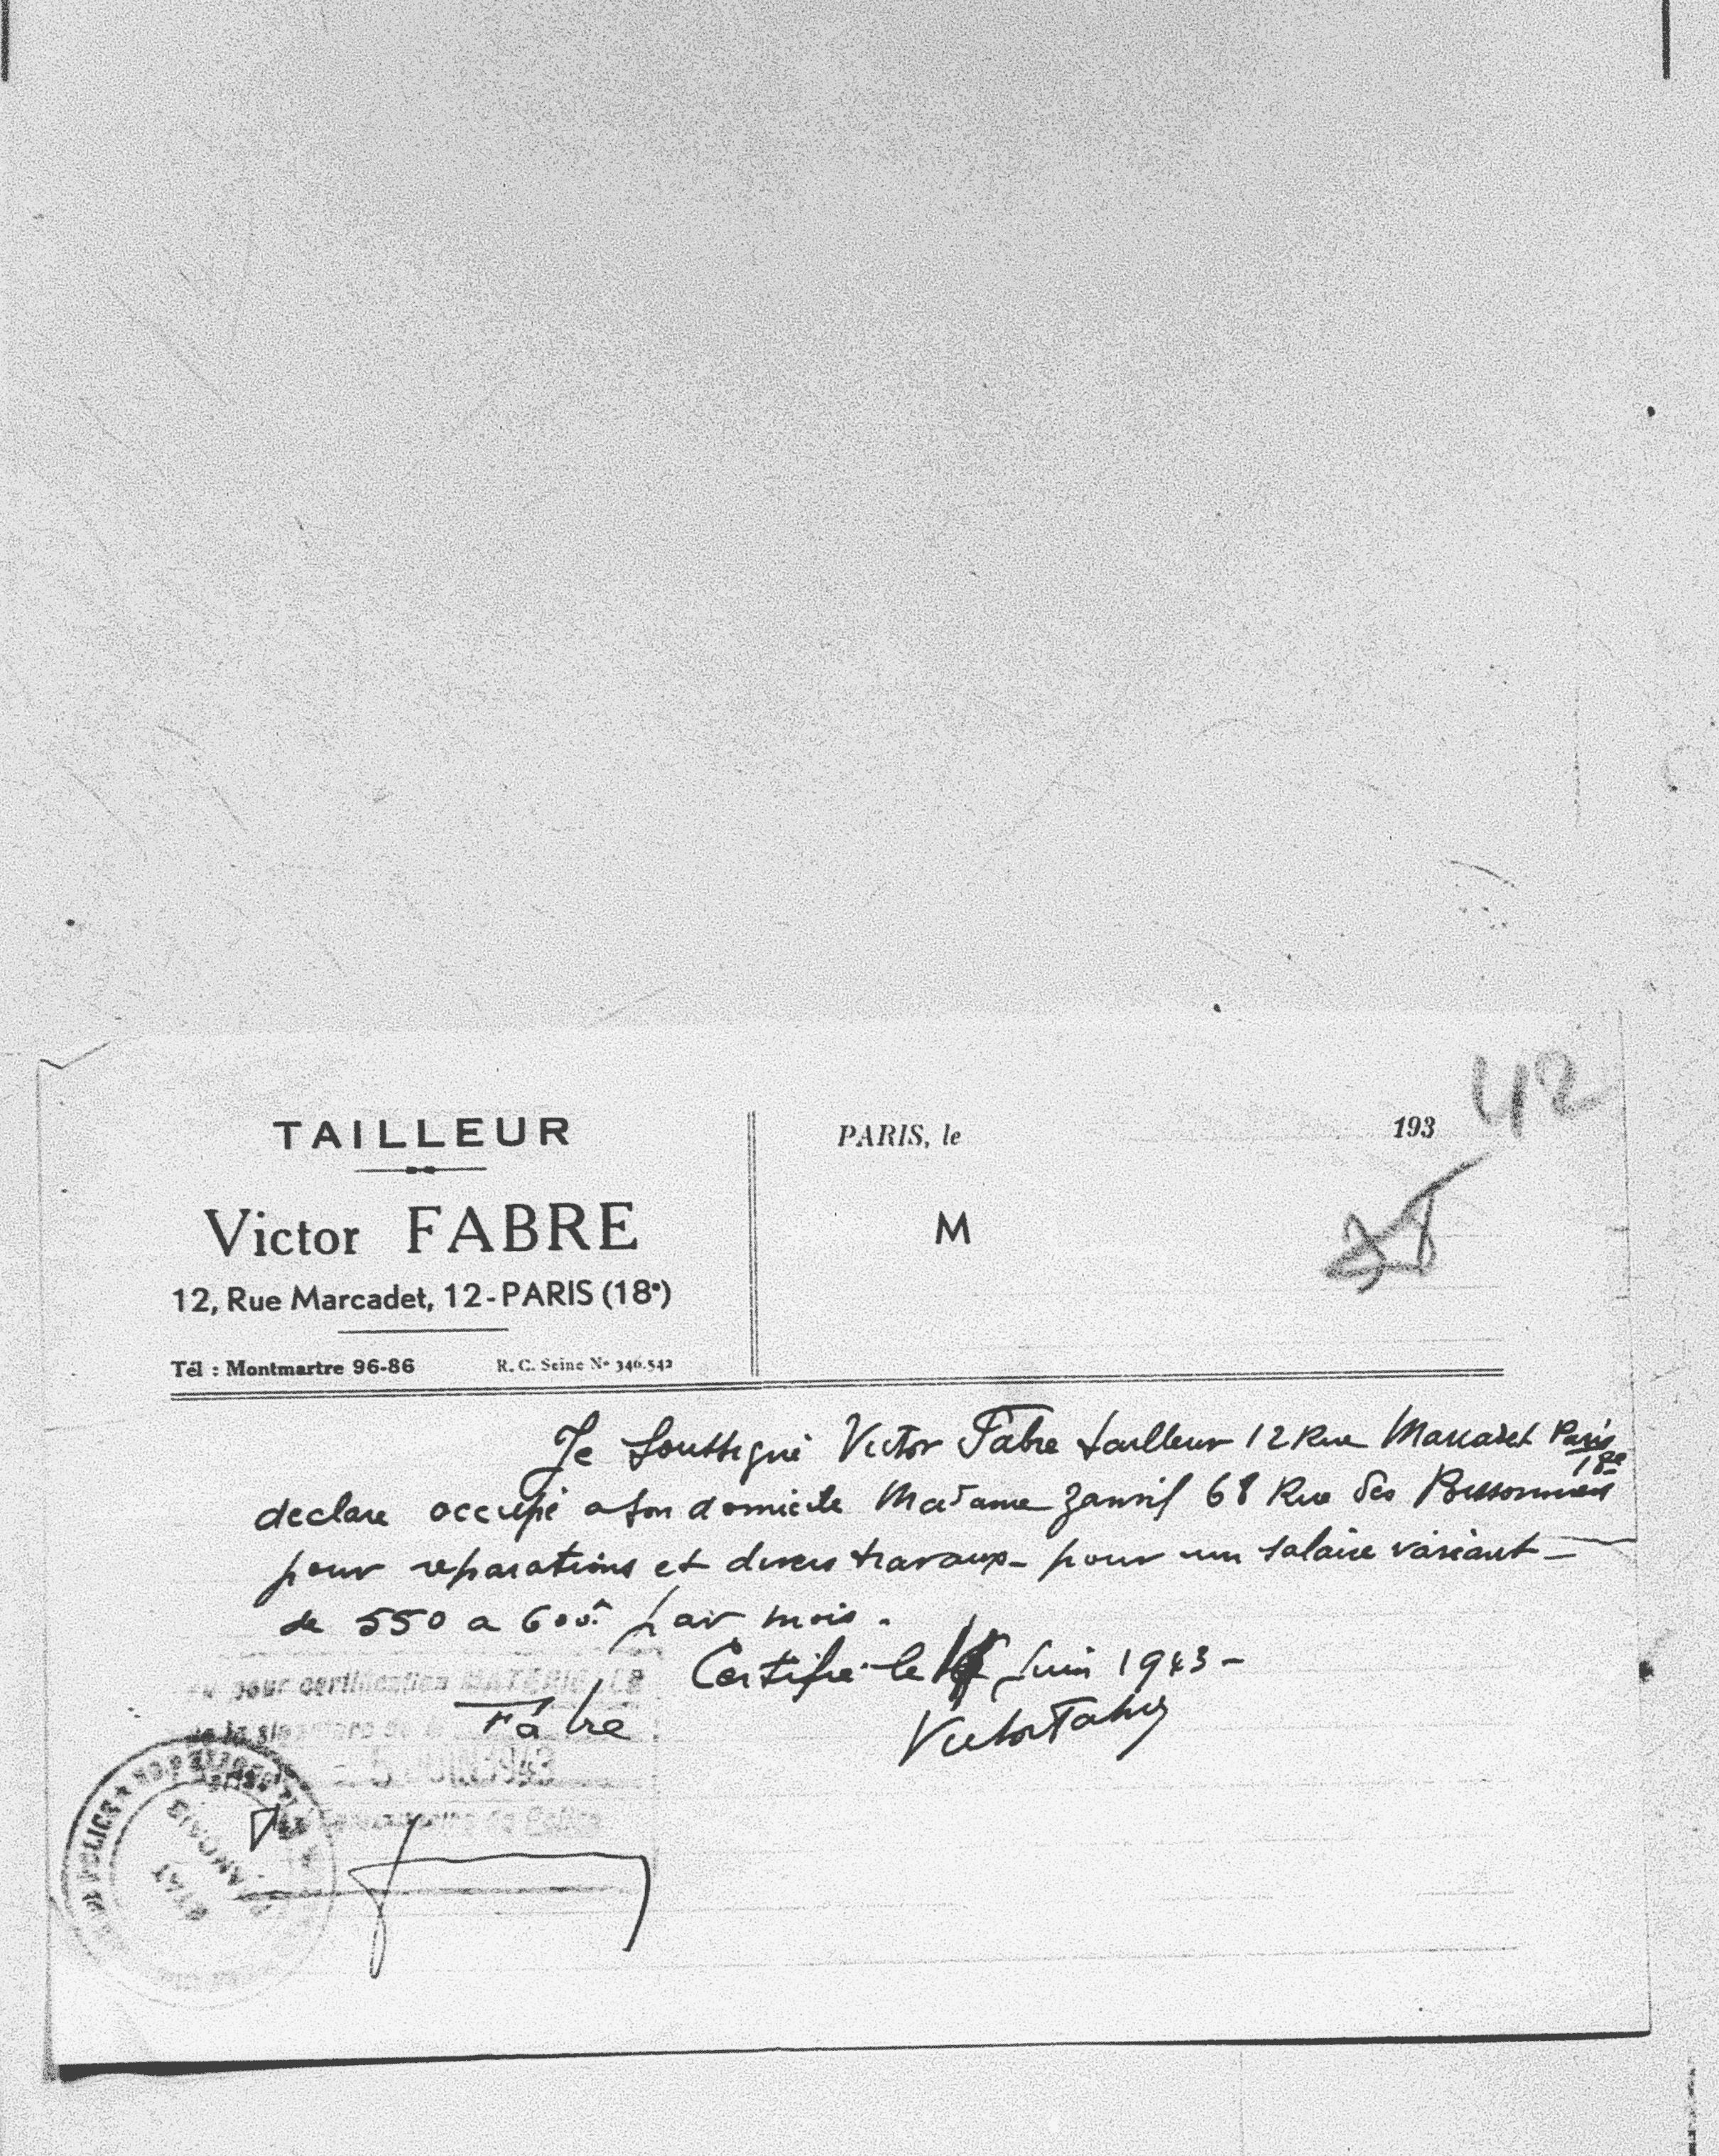 42
TAILLEUR
Victor FABRE
12, Rue Marcadet, 12-PARIS (18e)
Tél : Montmartre 96-86 R. C. Seine No 346.542
PARIS, le 193
M
Je soussigné Victor Fabre tailleur 12 Rue Marcadet Paris 18e
declare occupé a son domicile Madame Zanvil 68 Rue des Poissonniers
pour reparations et divers travaux - pour un salaire variant -
de 550 a 600 par mois.
Certifié le Juin 1943 -
Victor Fabre
pour certification MATERIELLE
de la signature de M
Fabre
de Police
DE POLICE